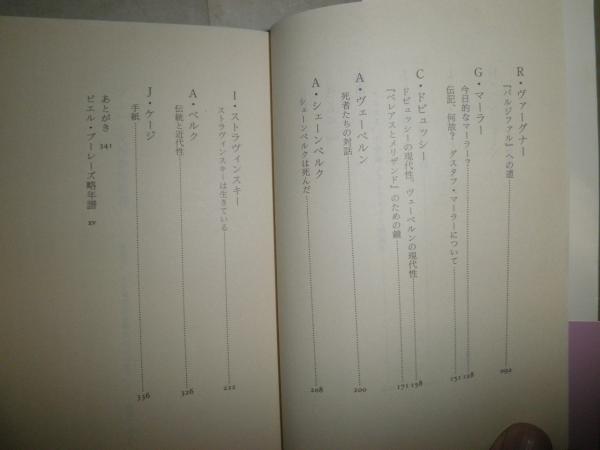 R・ヴァーグナー
『パルジファル』への道 092
G・マーラー
今日的なマーラー? 128
伝記、何故? グスタフ・マーラーについて 151
C・ドビュッシー
ドビュッシーの現代性、ヴェーベルンの現代性 158
『ペレアスとメリザンド』のための鏡 171
A・ヴェーベルン
死者たちの対話 200
A・シェーンベルク
シェーンベルクは死んだ 208
I・ストラヴィンスキー
ストラヴィンスキーは生きている 222
A・ベルク
伝統と近代性 326
J・ケージ
手紙 336
あとがき 341
ピエル・ブーレーズ略年譜 xv